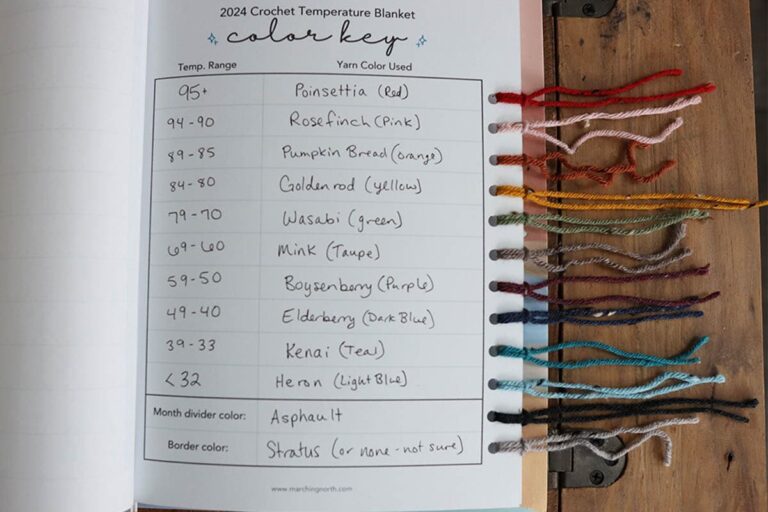 2024 Crochet Temperature Blanket
color key
Temp. Range Yarn Color Used
95+ Poinsettia (Red)
94-90 Rosefinch (Pink)
89-85 Pumpkin Bread (orange)
84-80 Goldenrod (yellow)
79-70 Wasabi (green)
69-60 Mink (Taupe)
59-50 Boysenberry (Purple)
49-40 Elderberry (Dark Blue)
39-33 Kenai (Teal)
<32 Heron (Light Blue)
Month divider color: Asphault
Border color: Stratus (or none - not sure)
www.marchingnorth.com